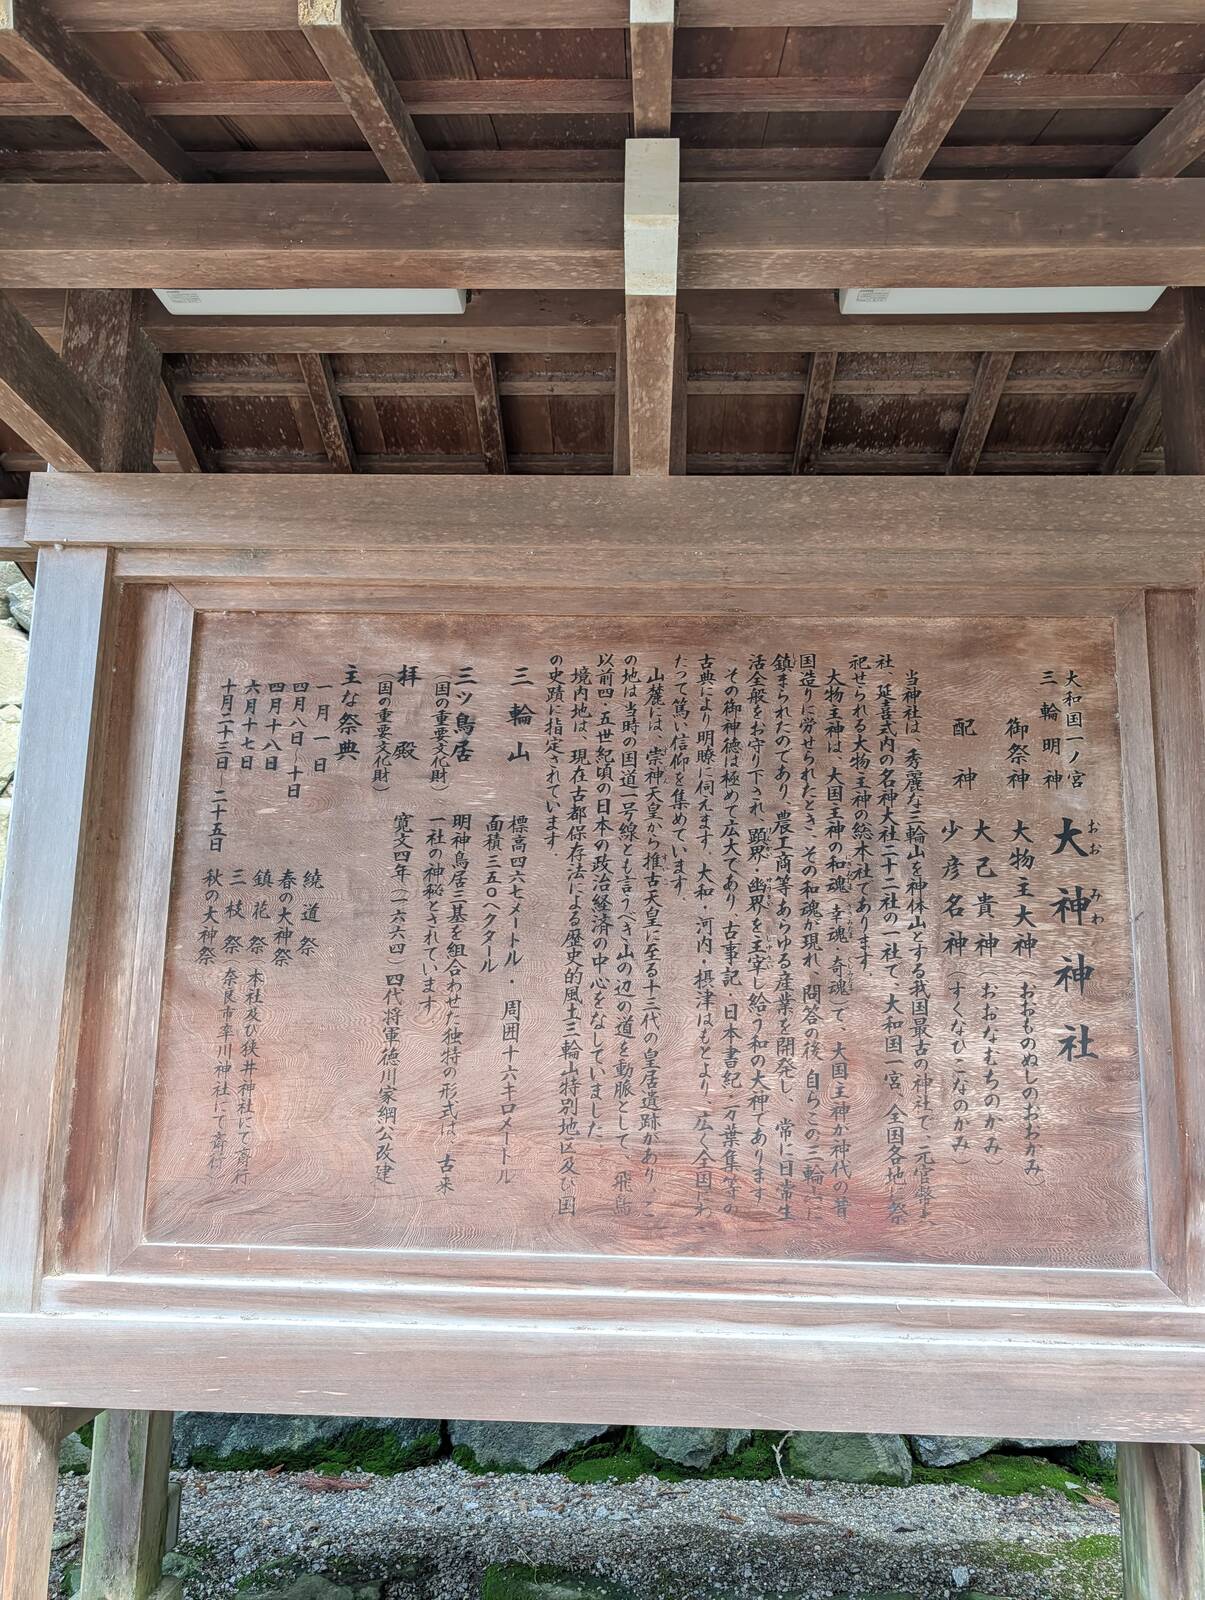 大和国一ノ宮
三輪明神
大神神社
おおみわ
御祭神 大物主大神(おおものぬしのおおかみ)
大己貴神(おおなむちのかみ)
配神 少彦名神(すくなひこなのかみ)
当神社は、秀麗な三輪山を神体山とする我国最古の神社で、元官幣大
社、延喜式内の名神大社二十二社の一社で、大和国一宮、全国各地に祭
祀せられる大物主神の総本社であります。
大物主神は、大国主神の和魂 幸魂 奇魂で、大国主神が神代の昔
国造りに労せられたとき、その和魂が現れ、問答の後、自らこの三輪山に
鎮まられたのであり、農工商等あらゆる産業を開発し、常に日常生
活全般をお守り下され、顕界・幽界を主宰し給う和の大神であります
その御神徳は極めて広大であり、古事記・日本書紀・万葉集等の
古典により明瞭に伺えます、大和・河内・摂津はもとより、広く全国にわ
たって篤い信仰を集めています。
山麓には、崇神天皇から推古天皇に至る十三代の皇居遺跡があり、こ
の地は当時の国道一号線とも言うべき山の辺の道を動脈として、飛鳥
以前四・五世紀頃の日本の政治経済の中心をなしていました
境内地は、現在古都保存法による歴史的風土三輪山特別地区及び国
の史蹟に指定されています。
三輪山 標高四六七メートル・周囲十六キロメートル
面積三五〇ヘクタール
三ツ鳥居 明神鳥居三基を組合わせた独特の形式は、古来
(国の重要文化財) 一社の神秘とされています
拝殿 寛文四年(一六六四)四代将軍徳川家綱公改建
(国の重要文化財)
主な祭典
一月一日 繞道祭
四月八日〜十日 春の大神祭
四月十八日 鎮花祭 本社及び狭井神社にて斎行
六月十七日 三枝祭 奈良市率川神社にて斎行
十月二十三日〜二十五日 秋の大神祭